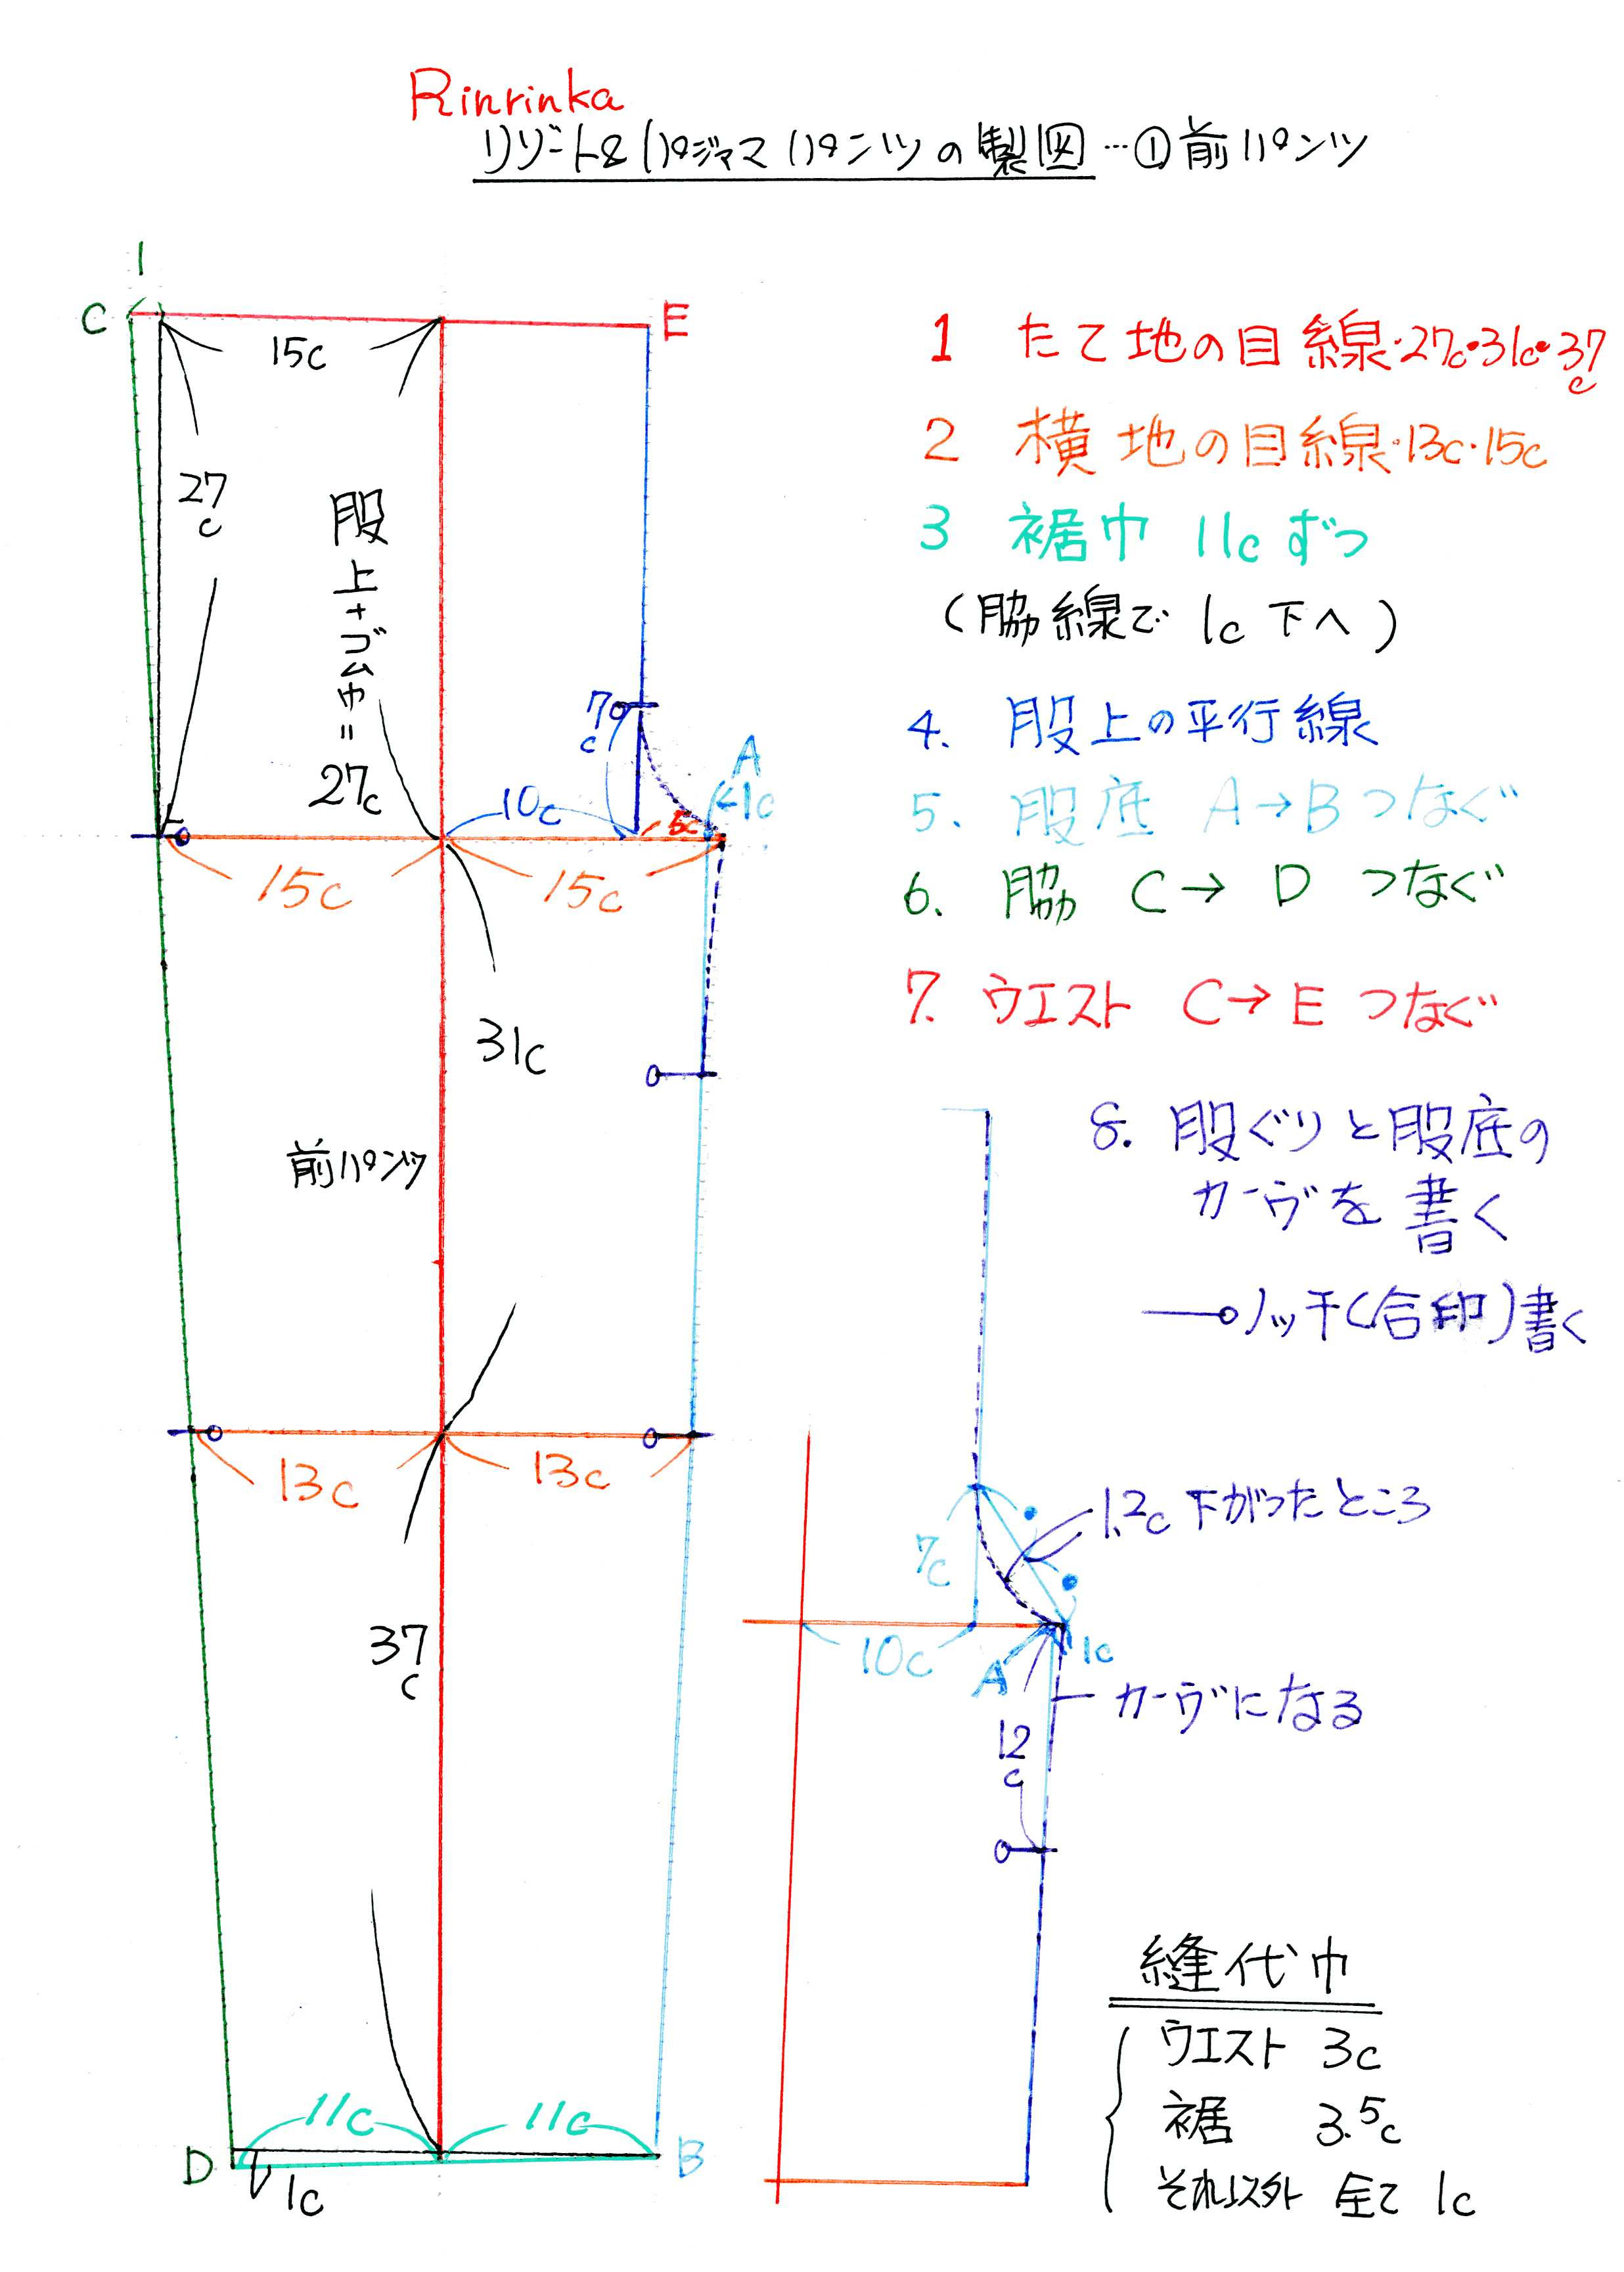 Rinrinka
リゾート&パジャマパンツの製図…①前パンツ
1
C
E
15c
27c
股上+ゴム巾=27c
7c
A
1c
10c
5c
15c
15c
31c
前パンツ
13c
13c
37c
11c
11c
D
B
1c
1 たて地の目線・27c・31c・37c
2 横地の目線・13c・15c
3 裾巾 11cずつ
(脇線で 1c 下へ)
4. 股上の平行線
5. 股底 A→Bつなぐ
6. 脇 C→D つなぐ
7. ウエスト C→E つなぐ
8. 股ぐりと股底の
カーヴを書く
ノッチ(合印)書く
1.2c 下がったところ
7c
10c
A
1c
カーヴになる
12c
縫代巾
ウエスト 3c
裾 3.5c
それ以外 全て 1c